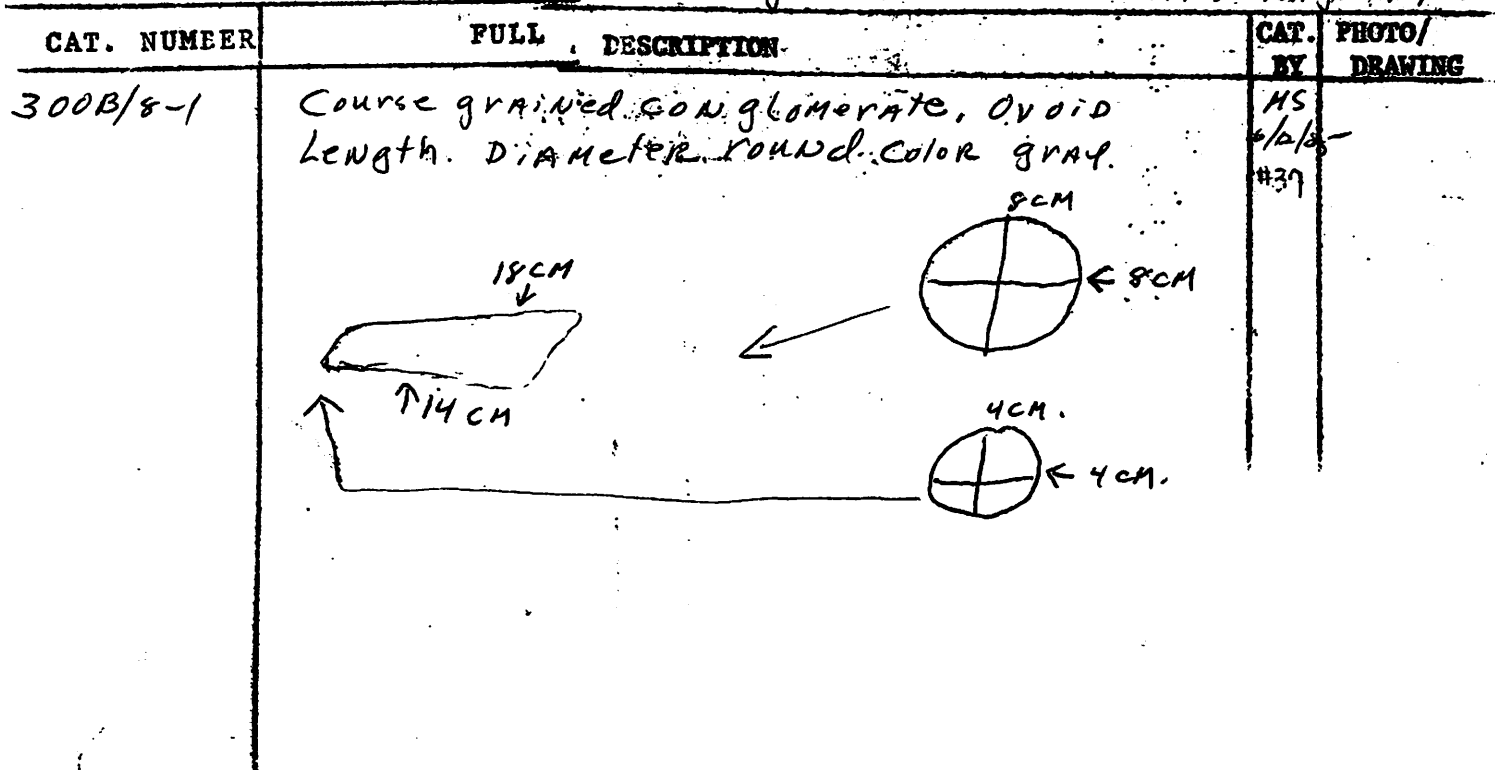 CAT. NUMBER FULL DESCRIPTION CAT. BY PHOTO/ DRAWING
300B/8-1 Course grained conglomerate, Ovoid HS
Length. Diameter round. Color gray.
#37
8CM
18CM
← 8CM
↑14 CM
4CM.
← 4CM.